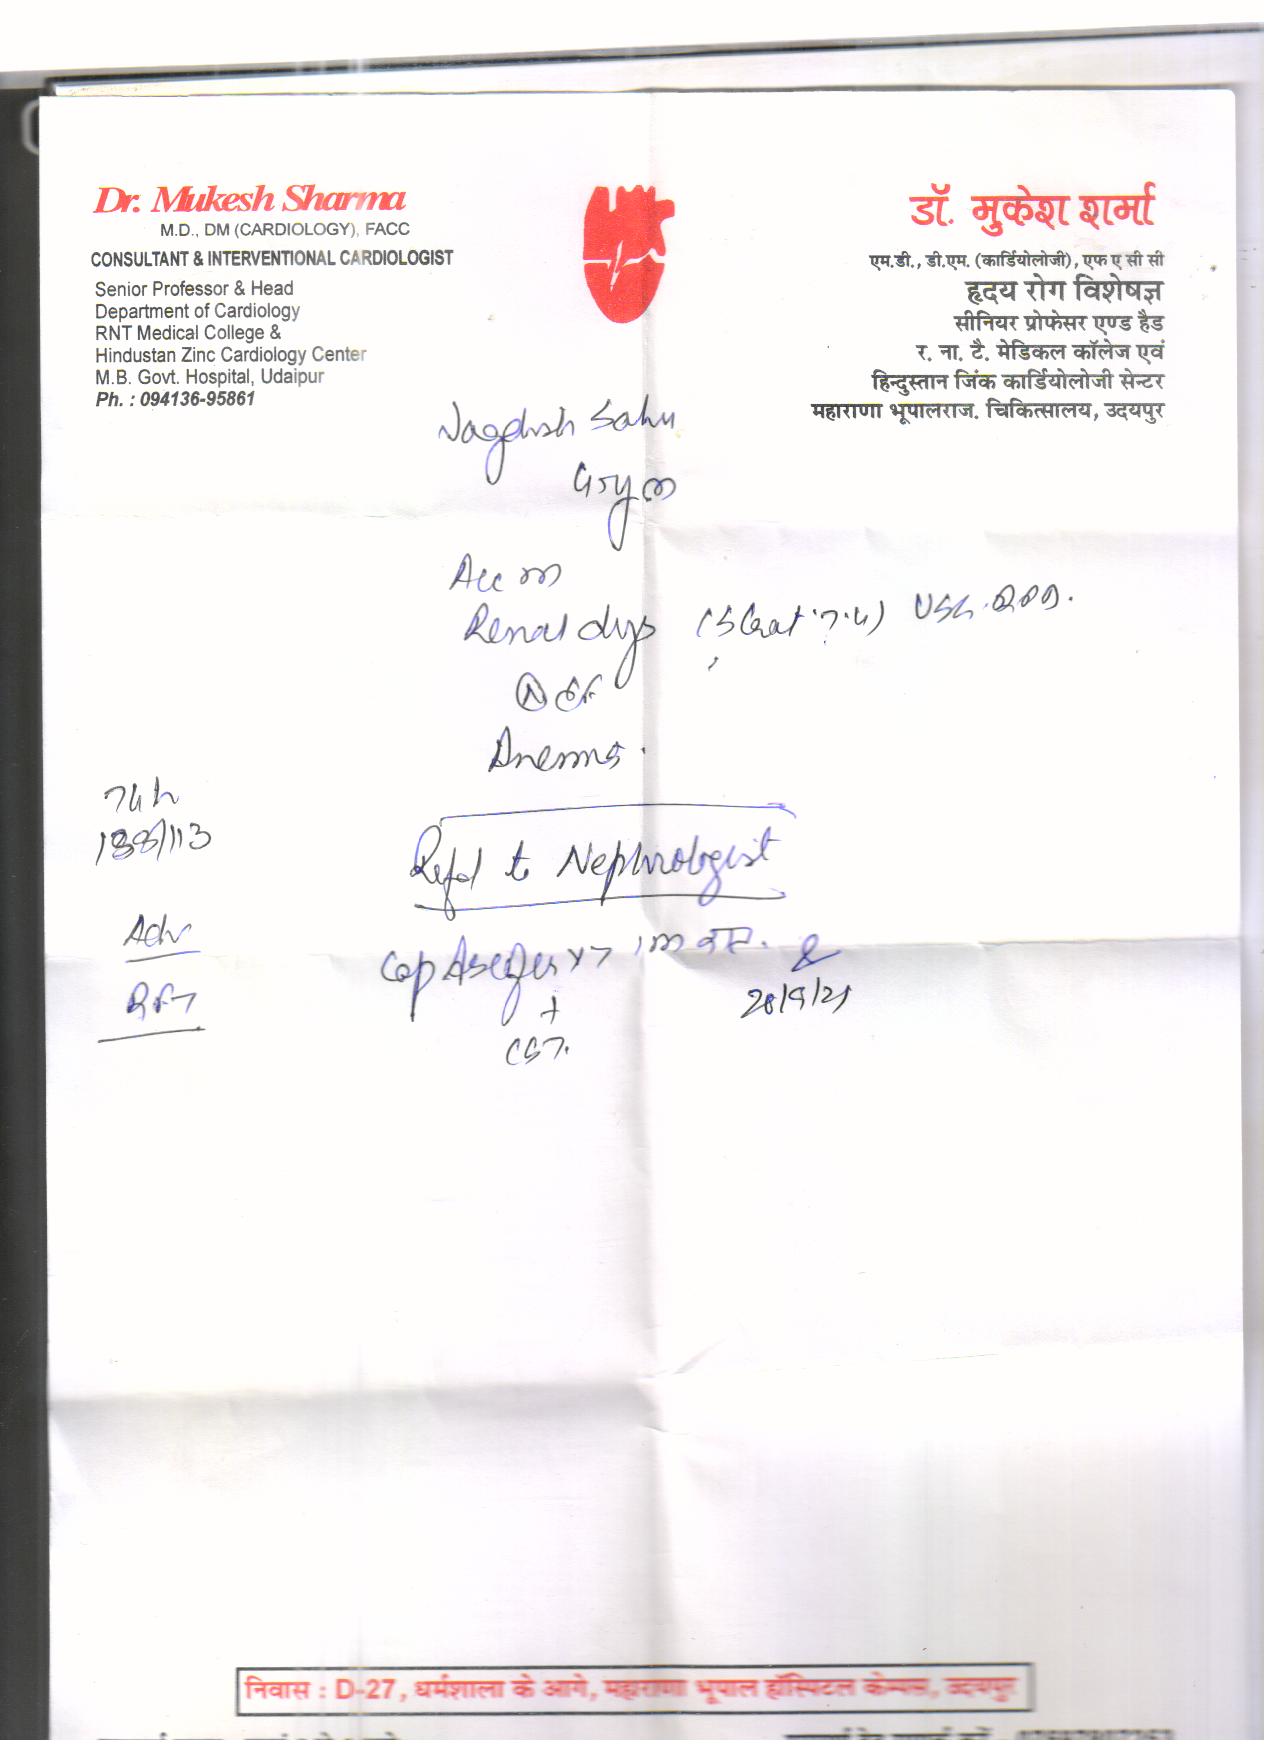 Dr. Mukesh Sharma
M.D., DM (CARDIOLOGY), FACC
CONSULTANT & INTERVENTIONAL CARDIOLOGIST
Senior Professor & Head
Department of Cardiology
RNT Medical College &
Hindustan Zinc Cardiology Center
M.B. Govt. Hospital, Udaipur
Ph. : 094136-95861
डॉ. मुकेश शर्मा
एम.डी., डी.एम. (कार्डियोलोजी), एफ ए सी सी
हृदय रोग विशेषज्ञ
सीनियर प्रोफेसर एण्ड हैड
र. ना. टै. मेडिकल कॉलेज एवं
हिन्दुस्तान जिंक कार्डियोलोजी सेन्टर
महाराणा भूपालराज. चिकित्सालय, उदयपुर
Jagdish Sahu
Renal dys
Anemia.
188/113
Refd to Nephrologist
Adv
RFT
Cap
+
CST.
20/9/21
निवास : D-27, धर्मशाला के आगे, महाराणा भूपाल हॉस्पिटल केम्पस, उदयपुर